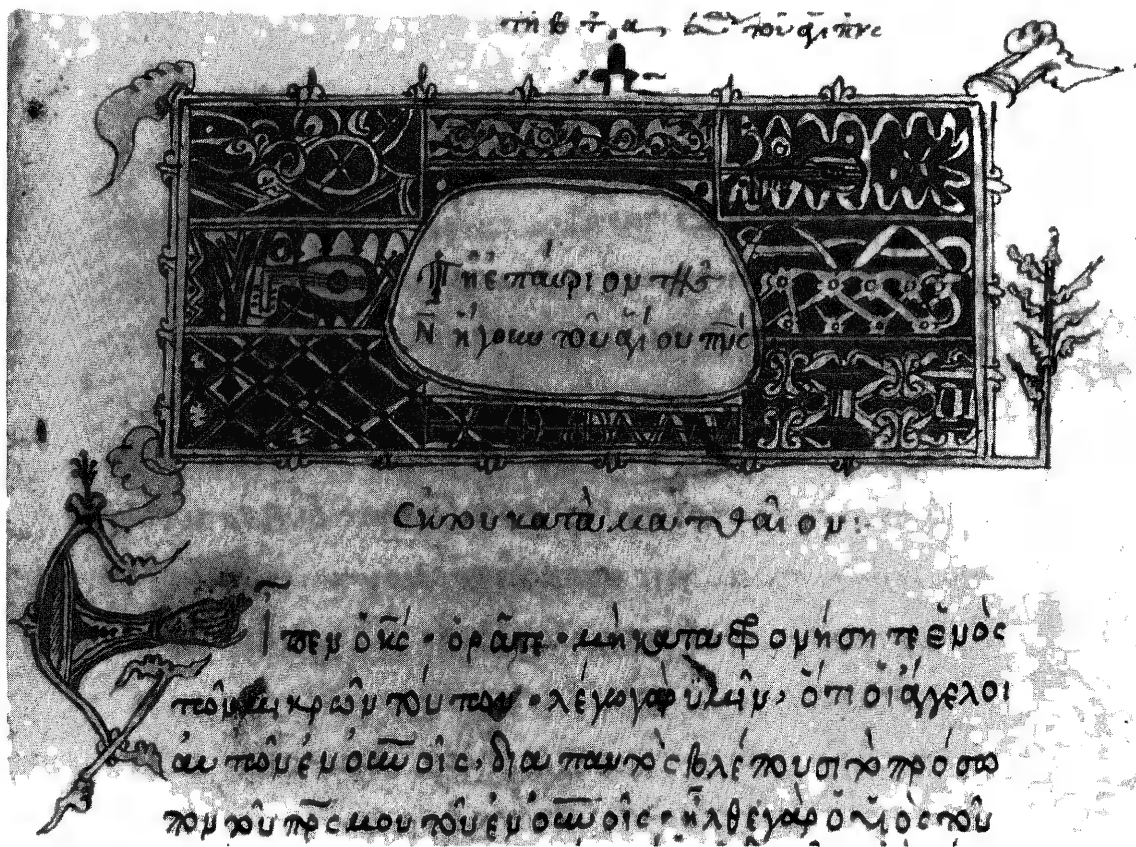 τῇ β τ α τοῦ ἁγι πνς
Τῇ ἐπαύριον τῆς
Ν ἤγουν τοῦ ἁγίου πνς
Ἐκ τοῦ κατὰ ματθαῖον:
Εἶπεν ὁ κς · ὁρᾶτε · μὴ καταφρονήσητε ἑνὸς
τῶν μικρῶν τούτων · λέγω γὰρ ὑμῖν, ὅτι οἱ ἄγγελοι
αὐτῶν ἐν οὐνοῖς, διὰ παντὸς βλέπουσι τὸ πρόσω
πον τοῦ πρς μου τοῦ ἐν οὐνοῖς · ἦλθε γὰρ ὁ υἱὸς τοῦ